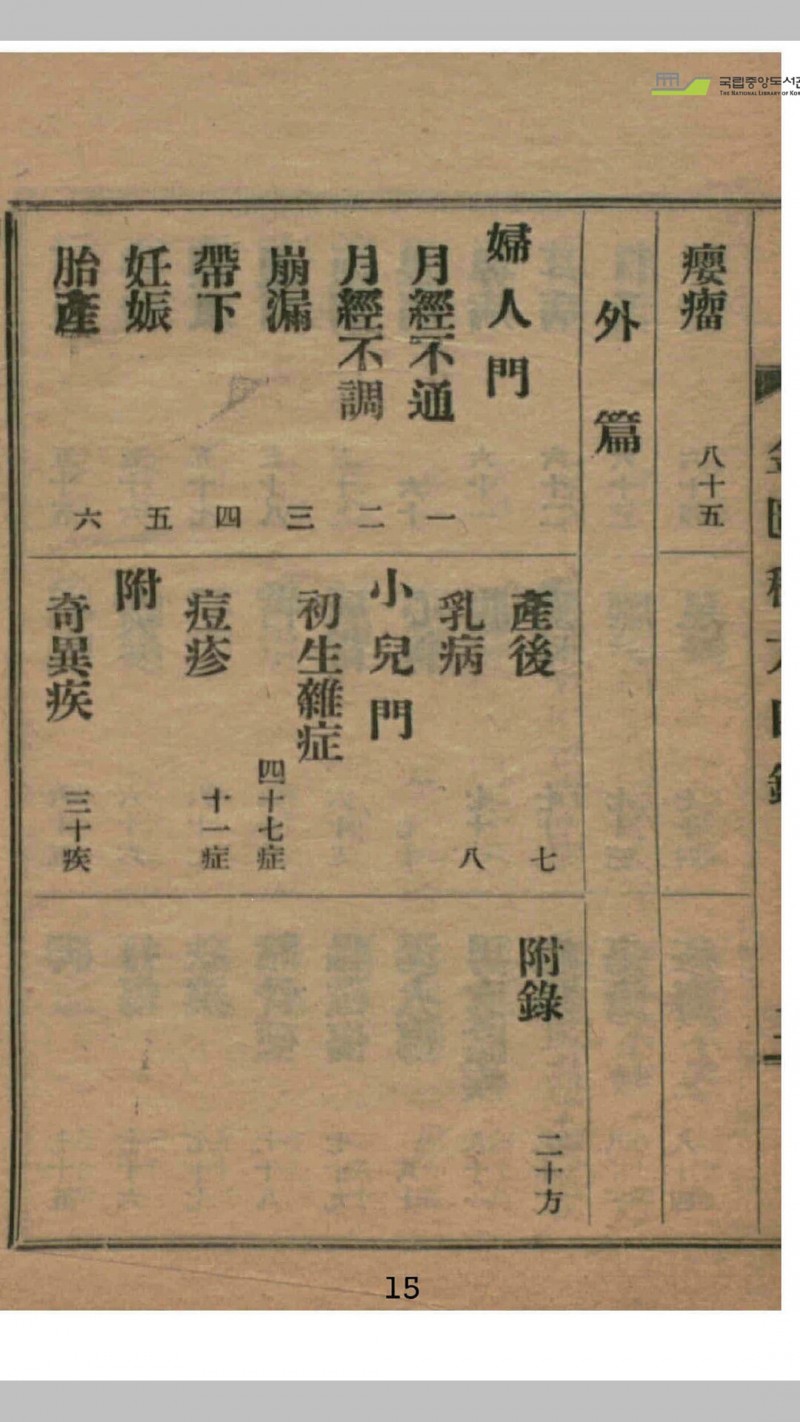 국립중앙도서관
THE NATIONAL LIBRARY OF KOR
癭瘤 八十五
外篇
婦人門
月經不通 一
月經不調 二
崩漏 三
帶下 四
妊娠 五
胎產 六
產後 七
乳病 八
小兒門
初生雜症 四十七症
痘疹 十一症
附
奇異疾 三十疾
附錄 二十方
15